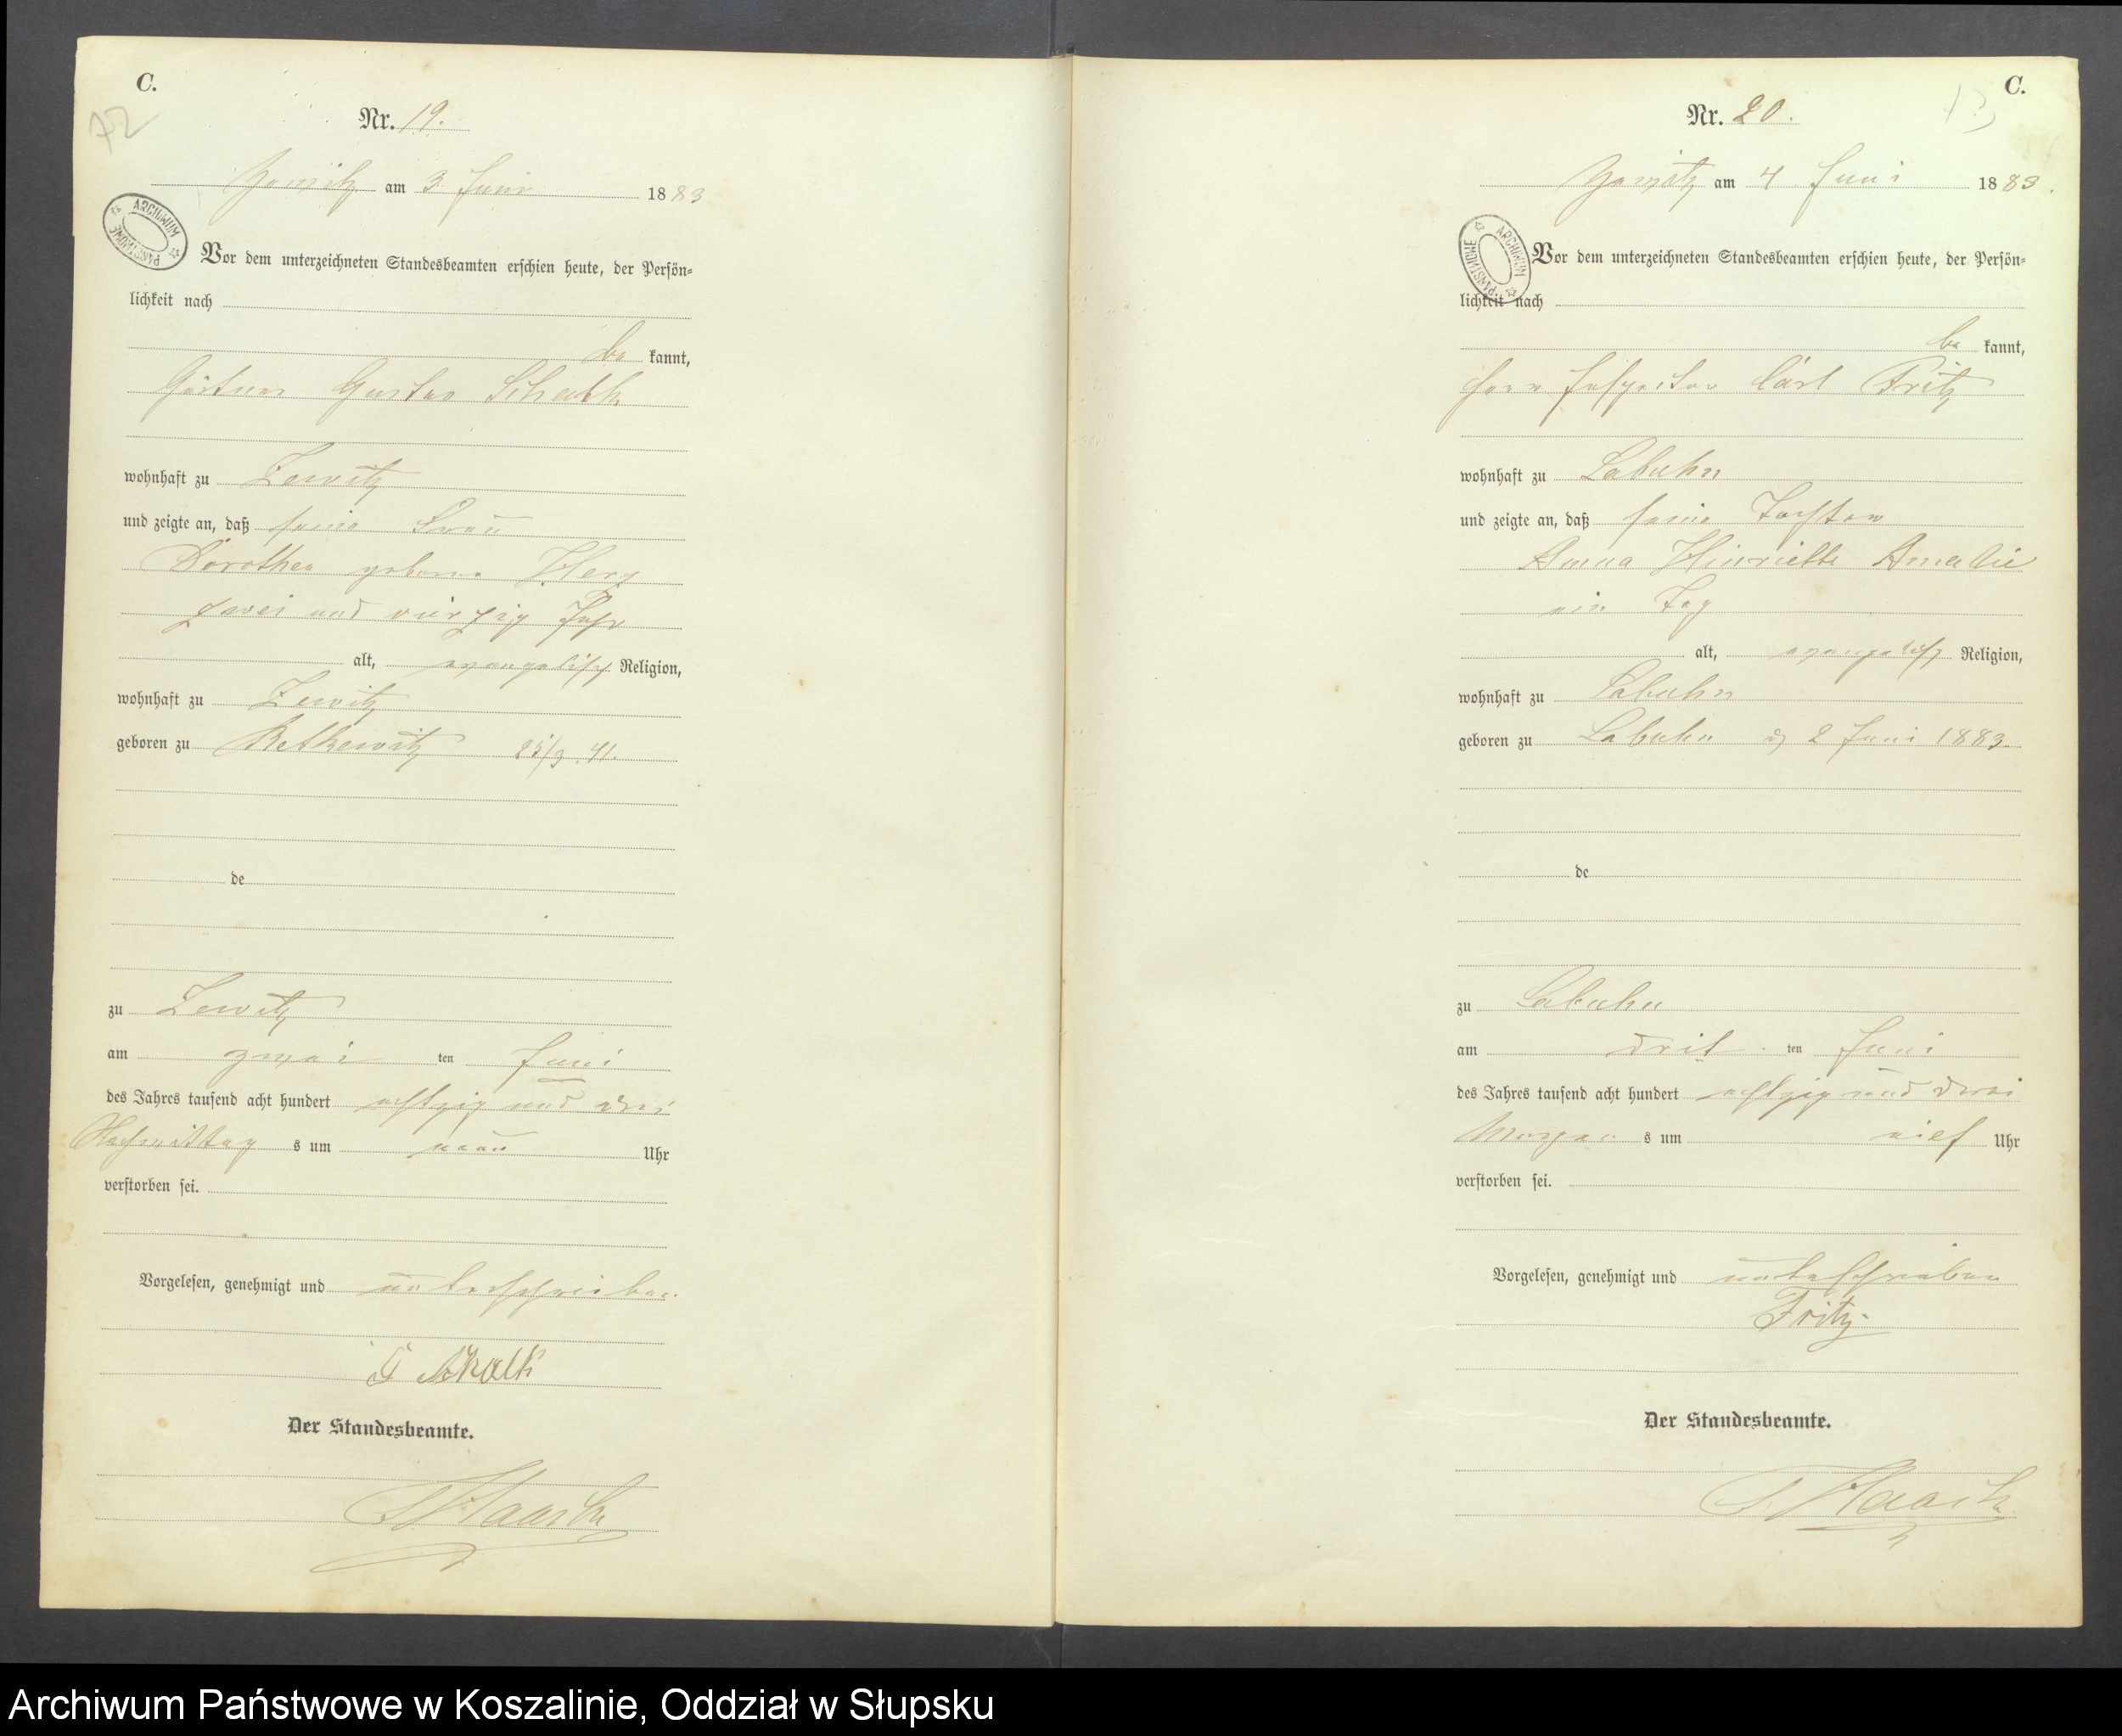 C.
Nr. 19.
am 3. Juni 1883
ARCHIWUM PAŃSTWOWE
Vor dem unterzeichneten Standesbeamten erschien heute, der Persön-
lichkeit nach
be kannt,
Gärtner Gustav
wohnhaft zu Zewitz
und zeigte an, daß seine Frau
Dorothea geborne
zwei und vierzig Jahr
alt, evangelisch Religion,
wohnhaft zu Zewitz
geboren zu 41.
de
zu Zewitz
am zwei ten Juni
des Jahres tausend acht hundert achtzig und drei
Nachmittag s um neun Uhr
verstorben sei.
Vorgelesen, genehmigt und unterschrieben
Der Standesbeamte.
C.
Nr. 20.
am 4 Juni 1883.
ARCHIWUM PAŃSTWOWE
Vor dem unterzeichneten Standesbeamten erschien heute, der Persön-
lichkeit nach
be kannt,
Herr Inspector Carl Fritz
wohnhaft zu Labuhn
und zeigte an, daß seine Tochter
Anna Hinriette Amalie
ein Tag
alt, evangelisch Religion,
wohnhaft zu Labuhn
geboren zu Labuhn 2 Juni 1883.
de
zu Labuhn
am drit ten Juni
des Jahres tausend acht hundert achtzig und drei
Morgen s um Uhr
verstorben sei.
Vorgelesen, genehmigt und unterschrieben
Fritz
Der Standesbeamte.
Archiwum Państwowe w Koszalinie, Oddział w Słupsku